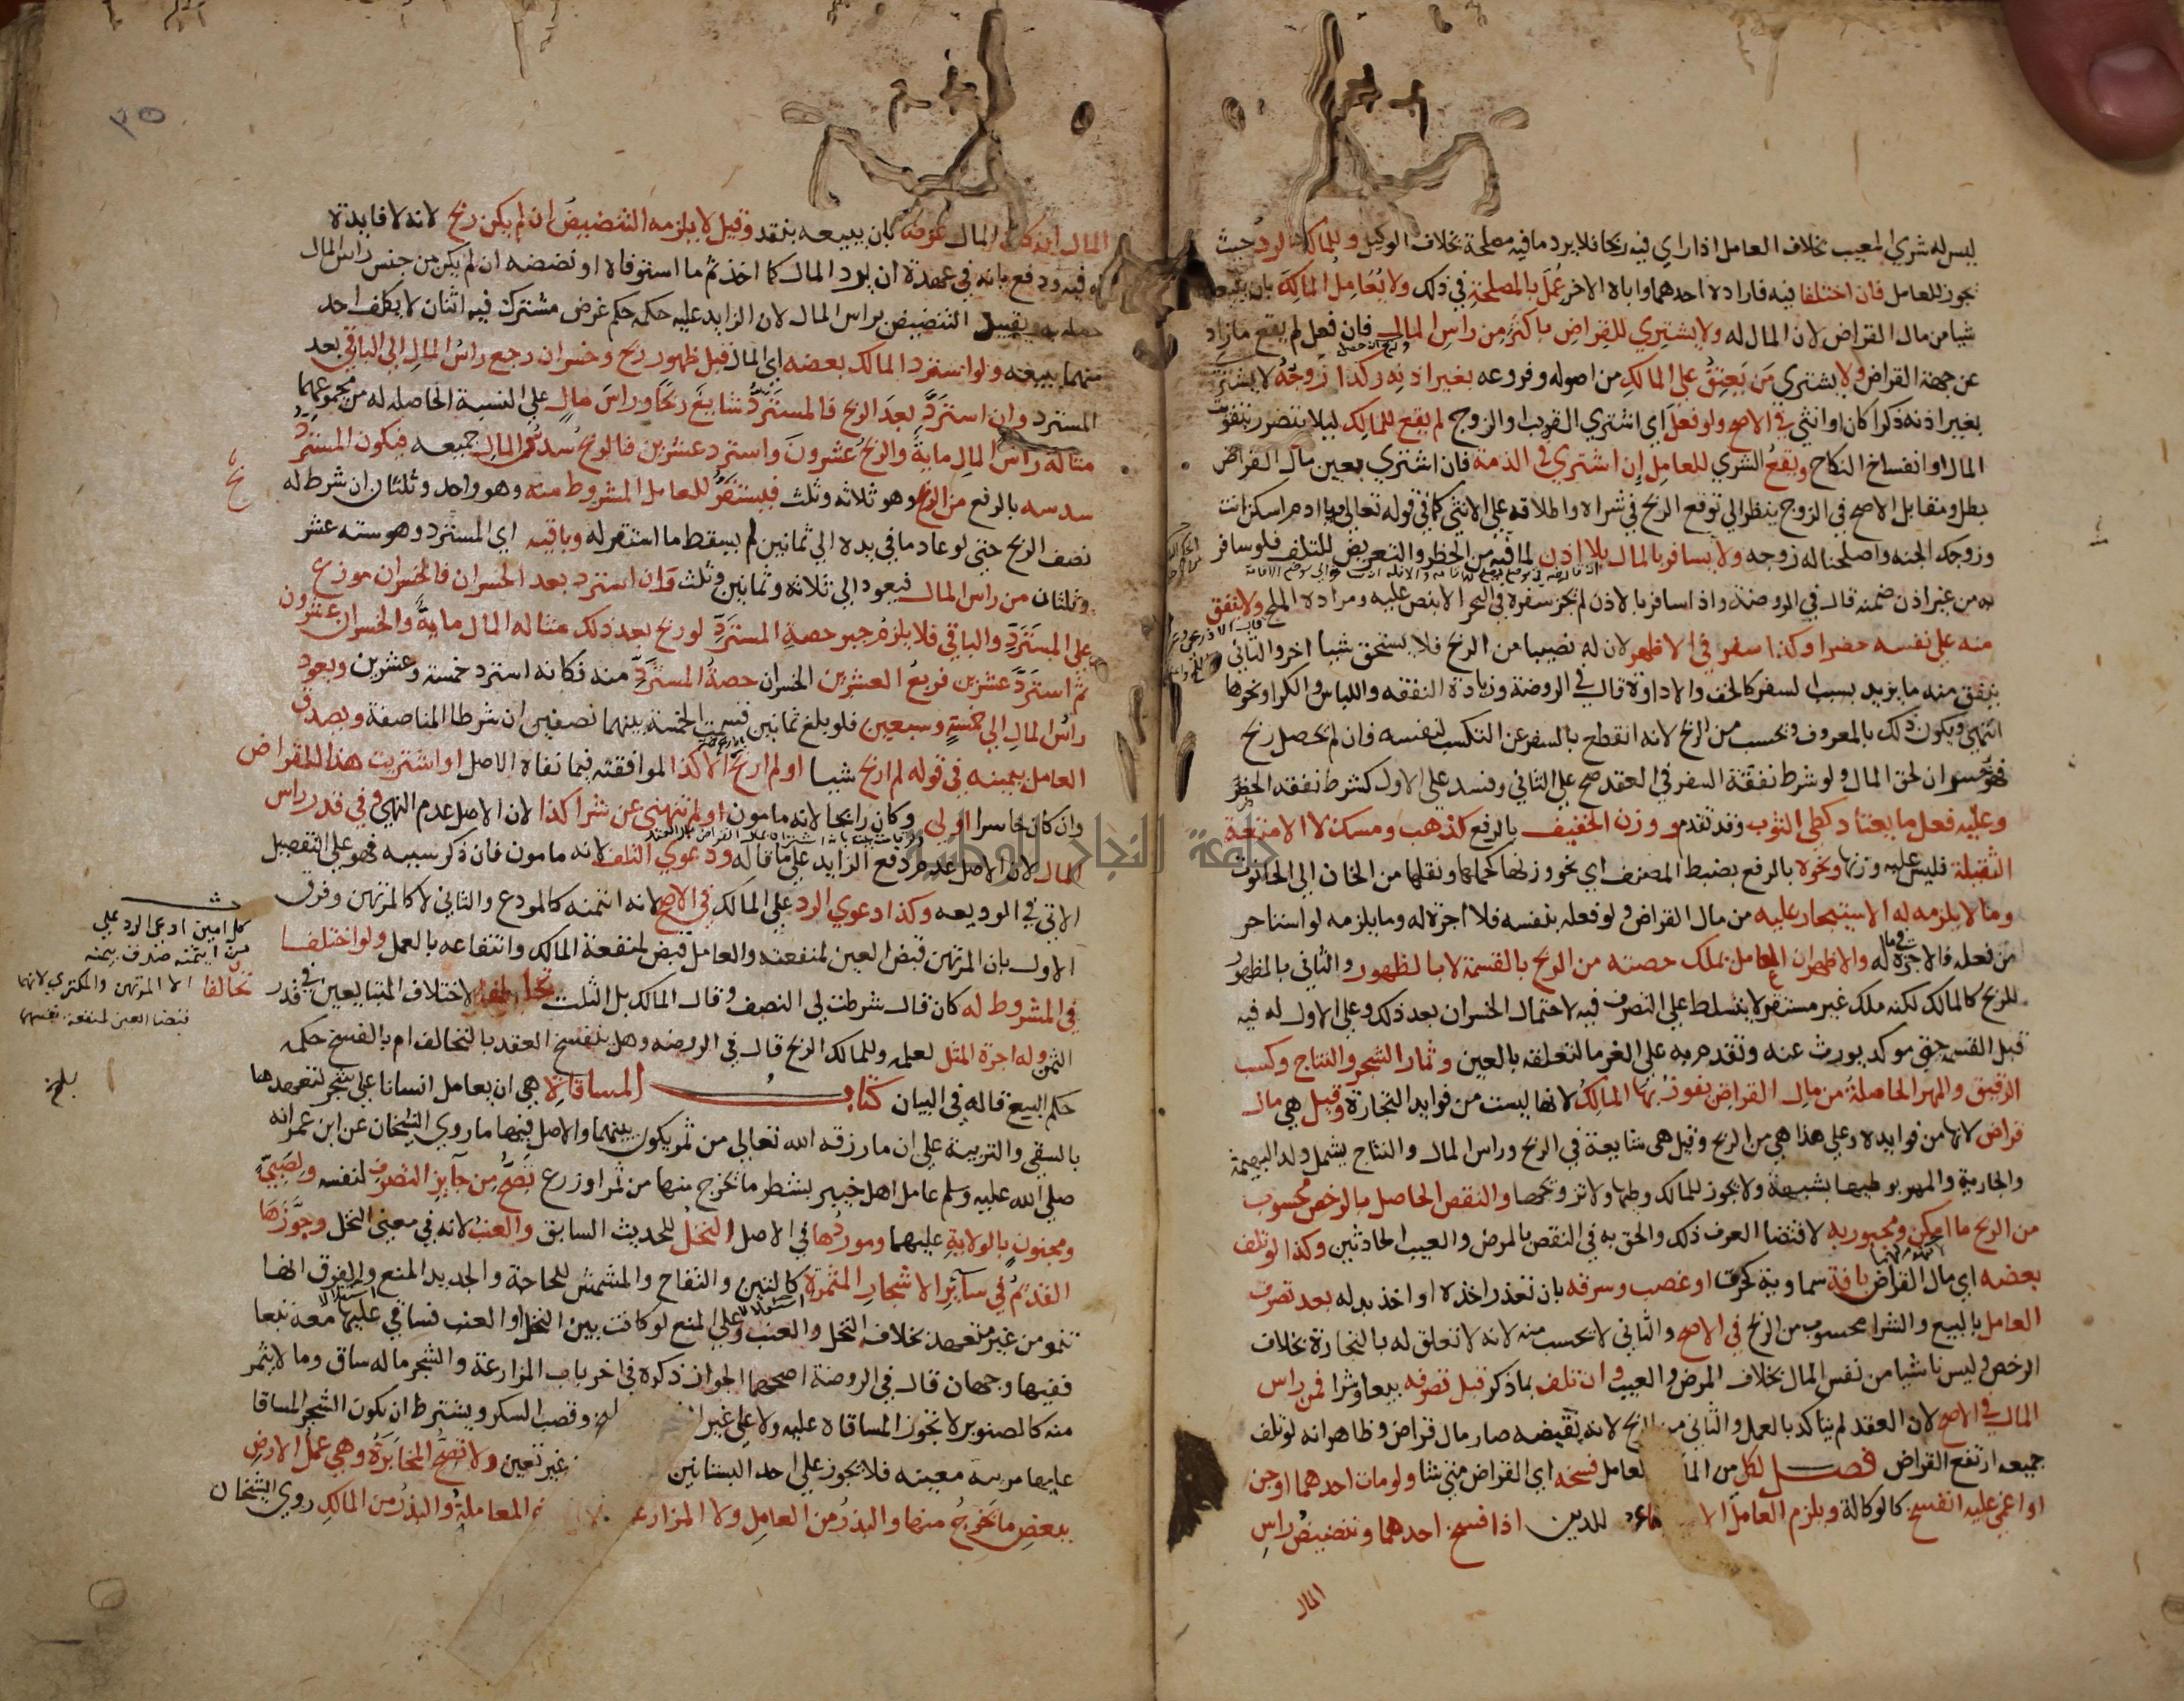 ليس له شري المعيب بخلاف العامل اذا راي فيه ربحا فلا يرد ما فيه مصلحة بخلاف الوكيل وللمالك الرد حيث
يجوز للعامل فان اختلفا فيه فاراده احدهما واباه الاخر عُمل بالمصلحة في ذلك ولا يُعامِلُ المالكَ بان يبيعه
شيا من مال القراض لان المال له ولا يشتري للقراضِ باكثر من راسِ المالِ فان فعل لم يقع ما زاد
عن جهة القراض ولا يشتري مَن يَعتِقُ علي المالكِ من اصوله وفروعه بغير اذنه وكذا زوجُهُ لا يشتريه
بغير اذنه ذكرا كان او انثي في الاصح ولو فعل اي اشتري القريب او الزوج لم يقع للمالِك ليلا يتضرر بتفويت
المال او انفساخ النكاح ويقعُ الشري للعامِلِ إن اشتري في الذمة فان اشتري بعين مال القراض
بطل ومقابل الاصح في الزوج ينظر الي توقع الربح في شراه واطلاقه علي الانثي كما في قوله تعالي ويا ادم اسكن انت
وزوجك الجنه واصلحنا له زوجه ولا يسافر بالمال بلا اذن لما فيه من الخطر والتعريض للتلف فلو سافر
به من غير اذن ضمنه قال في الروضة واذا سافر بالاذن لم يجز سفره في البحر الا بنص عليه ومراده الملح ولا ينفق
منه علي نفسه حضرا وكذا سفر في الاظهر لان له نصيبا من الربح فلا يستحق شيا اخر والثاني
ينفق منه ما يزيد بسبب السفر كالخف والاداوة قال في الروضة وزيادة النفقه واللباس والكرا ونحوها
انتهي ويكون ذلك بالمعروف ويحسب من الربح لانه انقطع بالسفر عن التكسب لنفسه فان لم يحصل ربح
فهو خسران لحق المال ولو شرط نفقة السفر في العقد صح علي الثاني وفسد علي الاول كشرط نفقه الحضر
وعليه فعل ما يعتاد كطي الثوب وقد تقدم ووزن الخفيف بالرفع كذهب ومسك لا الامتعة
الثقيلة فليس عليه وزنها ونحوه بالرفع بضبط المصنف اي نحو وزنها كحملها ونقلها من الخان الي الحانوت
وما لا يلزمه له الاستيجار عليه من مال القراض ولو فعله بنفسه فلا اجرة له وما يلزمه لو استاجر
من فعله فالاجرة في ماله والاظهر ان العامل يملك حصته من الربح بالقسمة لا بالظهور والثاني بالظهور
للربح كالمالك لكنه ملك غير مستقر لا يتسلط علي التصرف فيه لاحتمال الخسران بعد ذلك وعلي الاول له فيه
قبل القسمه حق موكد يورث عنه وتقدم به علي الغرما لتعلقه بالعين وثمار الشجر والنتاج وكسب
الرقيق والمهر الحاصلة من مالِ القراض يفوزُ بها المالِكُ لانها ليست من فوايد التجارة وقيل هي مال
قراض لانها من فوايده وعلي هذا هي من الربح وقيل هي شايعة في الربح وراس المال والنتاج يشمل ولد البهيمة
والجارية والمهر بوطيها بشبهة ولا يجوز للمالك وطيها ولا تزويجها والنقص الحاصل بالرخص محسوب
من الربح ما امكن ومجبور به لاقتضا العرف ذلك والحق به في النقص بالمرض والعيب الحادثين وكذا لو تلف
بعضه اي مال القراض بافة سماوية كحرق او غصب وسرقه بان تعذر اخذه او اخذ بدله بعد تصرف
العامل بالبيع والشرا محسوب من الربح في الاصح والثاني لا يحسب منه لانه لا تعلق له بالتجارة بخلاف
الرخص وليس ناشيا من نفس المال بخلاف المرض والعيب وان تلف بما ذكر قبل تصرفه بيعا وشرا فمن راس
المال في الاصح لان العقد لم يتاكد بالعمل والثاني من الربح لانه بقبضه صار مال قراض وظاهر انه لو تلف
جميعه ارتفع القراض فصل لكل من الما العامل فسخه اي القراض متي شا ولو مات احدهما او جن
او اغمي عليه انفسخ كالوكالة ويلزم العامل الا للدين اذا فسخ احدهما وتنضيضُ راسِ
المال
٣٥
المال ان كان المال عرضا بان يبيعه بنقد وقيل لا يلزمه التنضيض ان لم يكن ربح لانه لا فايدة
له فيه ودفع بانه في عهدة ان يرد المال كما اخذ ثم ما استوفاه او نضضه ان لم يكن من جنس راس المال
التنضيض براس المال لان الزايد عليه حكمه حكم عرض مشترك فيه اثنان لا يكلف احد
منهما ببيعه ولو استرد المالك بعضه اي المال قبل ظهور ربح وخسران رجع راسُ المالِ الي الباقي بعد
المسترد وان استردَّ بعدَ الربح فالمستردُّ شايعٌ ربحًا وراسَ مالٍ علي النسبة الحاصله له من مجموعهما
مثاله راس المالِ مايةٌ والربحُ عشرونَ واسترد عشرين فالربح سُدسُ المالِ جميعه فيكون المستردُّ
سدسه بالرفع من الربح وهو ثلاثه وثلث فيستقرُّ للعامل المشروط منه وهو واحد وثلثان ان شرط له
نصف الربح حتي لو عاد ما في يده الي ثمانين لم يسقط ما استقر له وباقيه اي المسترد وهو سته عشر
وثلثان من راس المال فيعود الي ثلاثه وثمانين وثلث وان استرد بعد الخسران فالخسران موزع
علي المستَرَدِّ والباقي فلا يلزمُ جبر حصةِ المستَرَدِّ لو ربح بعد ذلك مثاله المال مايةٌ والخسران عشرون
ثم استَرَدَّ عشرين فربعُ العشرين الخسران حصةُ المستَرَدِّ منه فكانه استرد خمسة وعشرين ويعود
راسُ المالِ الي خمسةٍ وسبعين فلو بلغ ثمانين قسمت الخمسة بينهما نصفين ان شرطا المناصفة ويصدق
العامل بيمينه في قوله لم اربح شيا او لم اربح الا كذا لموافقته فيما نفاه الاصل او اشتريت هذا للقراض
وان كان خاسرا او لي وكان رابحا لانه مامون او لم تنهني عن شرا كذا لان الاصل عدم النهي وفي قدر راس
المال لان الاصل عدم دفع الزايد علي ما قاله ودعوي التلف لانه مامون فان ذكر سببه فهو علي التفصيل
الاتي في الوديعه وكذا دعوي الرد علي المالك في الاصح لانه ائتمنه كالمودع والثاني لا كالمرتهن وفرق
الاول بان المرتهن قبض العين لمنفعته والعامل قبض لمنفعة المالك وانتفاعه بالعمل ولو اختلفا
في المشروط له كان قال شرطت لي النصف وقال المالك بل الثلث تحالفا لاختلاف المتبايعين في قدر
الثمن وله اجرة المثل لعمله وللمالك الربح قال في الروضه وهل ينفسخ العقد بالتحالف ام بالفسخ حكمه
حكم البيع قاله في البيان كتاب المساقاة هي ان يعامل انسانا علي شجر لتعهدها
بالسقي والتربية علي ان ما رزقه الله تعالي من ثمر يكون بينهما والاصل فيها ما روي الشيخان عن ابن عمر انه
صلي الله عليه وسلم عامل اهل خيبر بشطر ما يخرج منها من ثمر او زرع تصحُّ مِن جآيز التصرفِ لنفسه ولصبيٍّ
ومجنونٍ بالولايةِ عليهما وموردُها في الاصل النخلُ للحديث السابق والعنبُ لانه في معني النخل وجوَّزها
القديمُ في سآيرِ الاشجارِ المثمرة كالتين والتفاح والمشمش للحاجة والجديد المنع والفرق انها
تنمو من غير تعهد بخلاف النخل والعنب وعلي المنع لو كانت بين النخل او العنب فساقي عليها معه تبعا
ففيها وجهان قال في الروضة اصحهما الجواز ذكره في اخر باب المزارعة والشجر ما له ساق وما لا يثمر
منه كالصنوبر لا تجوز المساقاة عليه ولا علي غير وقصب السكر ويشترط ان يكون الشجر المساقا
عليها مرييه معينه فلا يجوز علي احد البستانين غير تعيين ولا تصحُّ المخابَرَةُ وهي عملُ الارضِ
ببعضِ ما يَخرجُ منها والبذرُ من العامِلِ ولا المزارعة المعاملةُ والبذرُ من المالكِ روي الشيخان
كل امين ادعي الرد علي
من ائتمنه صدق بيمينه
الا المرتهن والمكتري لانهما
قبضا العين لمنفعة نفسهما
تحالفا
بلغ